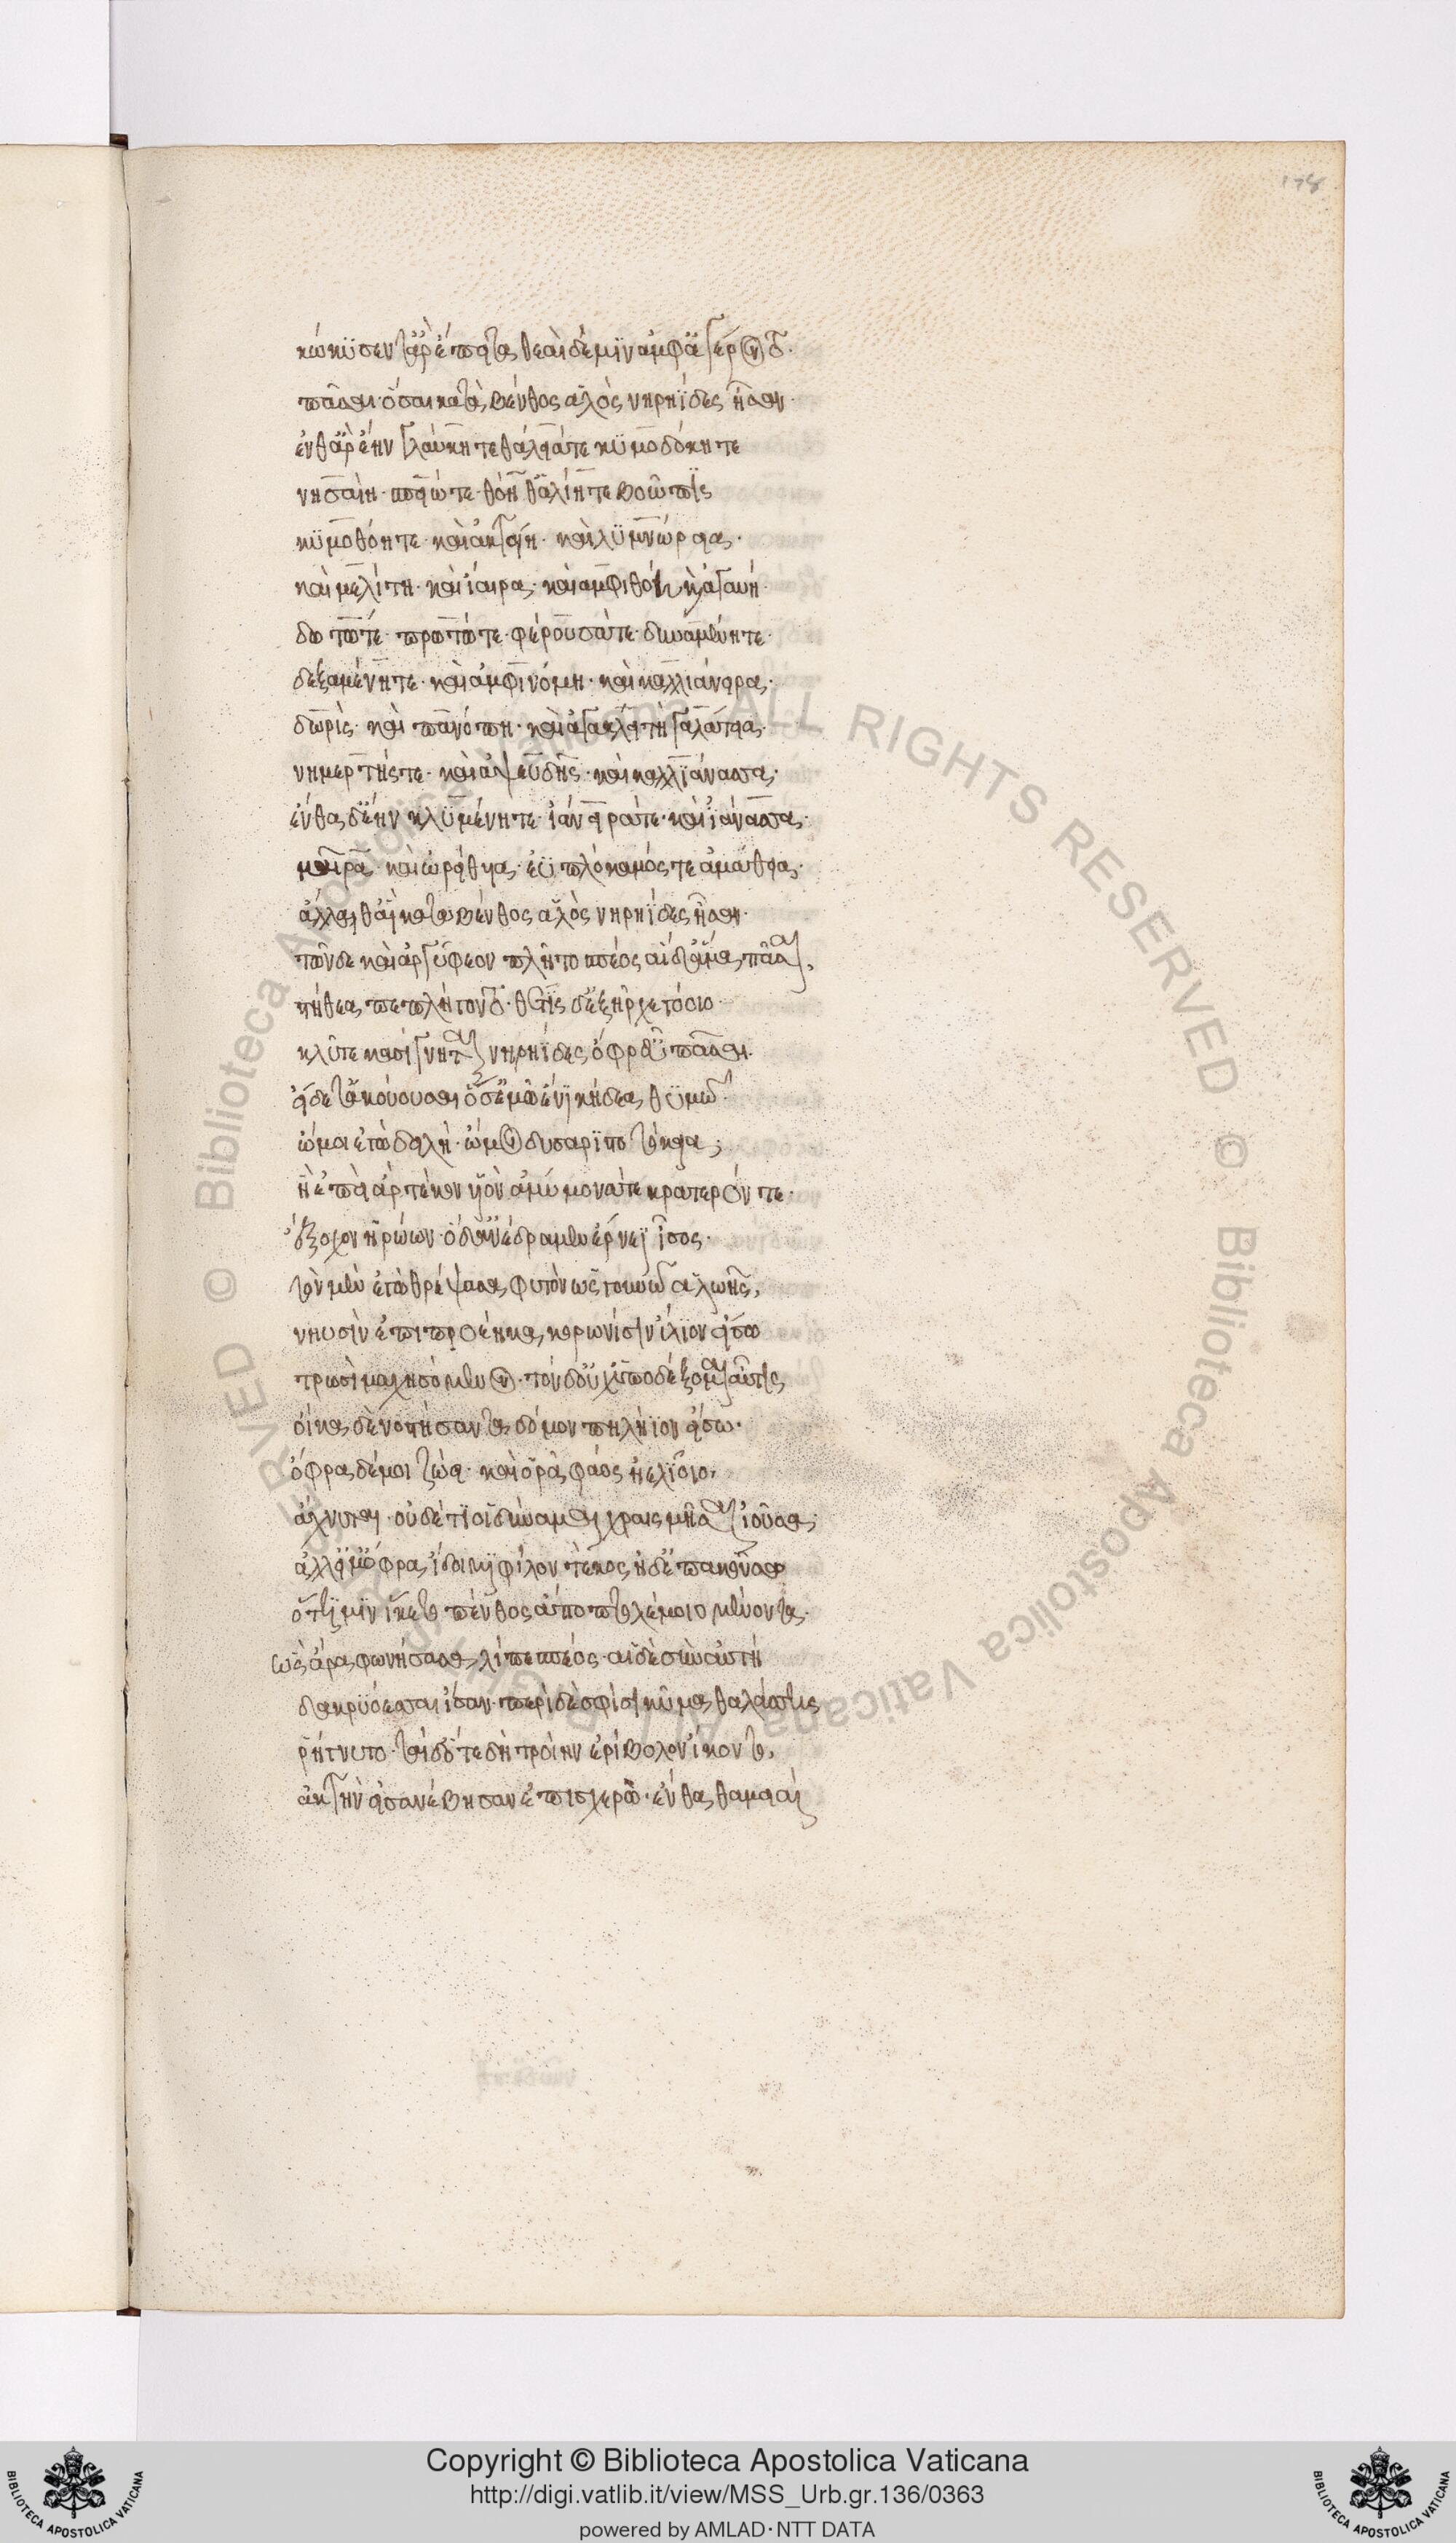 178
κώκυσέν τ' ἂρ ἔπειτα· θεαὶ δέ μιν ἀμφαγέροντο·
πᾶσαι· ὅσαι κατὰ βένθος ἁλὸς νηρηΐδες ἦσαν·
ἔνθ' ἂρ ἔην γλαύκη τε θάλειά τε κυμοδόκη τε
νησαίη· σπειώ τε· θόη θ' ἁλίη τε βοῶπις
κυμοθόη τε· καὶ ἀκταίη· καὶ λυμνώρεια·
καὶ μελίτη· καὶ ἴαιρα· καὶ ἀμφιθόη καὶ ἀγαυή·
δωτώ τε· πρωτώ τε· φέρουσά τε· δυναμένη τε·
δεξαμένη τε· καὶ ἀμφινόμη· καὶ καλλιάνειρα·
δωρὶς· καὶ πανόπη· καὶ ἀγακλειτὴ γαλάτεια·
νημερτής τε· καὶ ἀψευδὴς· καὶ καλλιάνασσα·
ἔνθα δ' ἔην κλυμένη τε· ἰάνειρά τε· καὶ ἰάνασσα·
μαῖρα· καὶ ὠρείθυια· ἐϋπλόκαμός τε ἀμάθεια·
ἄλλαι θ' αἳ κατὰ βένθος ἁλὸς νηρηΐδες ἦσαν·
τῶν δὲ καὶ ἀργύφεον πλῆτο σπέος· αἱ δ' ἅμα πᾶσαι,
στήθεα πεπλήγοντο· θέτις δ' ἐξῆρχε γόοιο·
κλῦτε κασίγνηται νηρηΐδες ὄφρ' εὖ πᾶσαι·
εἴδετ' ἀκούουσαι ὅσ' ἐμῶ ἔνι κήδεα θυμῶ·
ὤμοι ἐγὼ δειλή· ὤμοι δυσαριστοτόκεια;
ἥ τ' ἐπεὶ ἂρ τέκον υἱὸν ἀμύμονά τε κρατερόν τε·
ἔξοχον ἡρώων· ὁ δ' ἀνέδραμεν ἔρνεϊ ἶσος·
τὸν μὲν ἐγὼ θρέψασα φυτὸν ὣς γουνῷ ἀλωῆς,
νηυσὶν ἐπιπροέηκα κορωνίσιν ἴλιον εἴσω
τρωσὶ μαχησόμενον· τὸν δ' οὐχ ὑποδέξομαι αὖτις
οἴκαδε νοστήσαντα δόμον πηλήϊον εἴσω·
ὄφρα δέ μοι ζώει· καὶ ὁρᾷ φάος ἠελίοιο,
ἄχνυται· οὐδέ τί οἱ δύναμαι χραισμῆσαι ἰοῦσα;
ἀλλ' εἶμ' ὄφρα ἴδοιμι φίλον τέκος ἠδ' ἐπακούσω
ὅττί μιν ἵκετο πένθος ἀπὸ πτολέμοιο μένοντα·
ὣς ἄρα φωνήσασα λίπε σπέος· αἱ δὲ σὺν αὐτῇ
δακρυόεσσαι ἴσαν· περὶ δέ σφισι κῦμα θαλάσσης
ῥήγνυτο· ταὶ δ' ὅτε δὴ τροίην ἐρίβωλον ἵκοντο,
ἀκτὴν εἰσανέβησαν ἐπισχερώ· ἔνθα θαμειαὶ
Copyright © Biblioteca Apostolica Vaticana
http://digi.vatlib.it/view/MSS_Urb.gr.136/0363
powered by AMLAD·NTT DATA